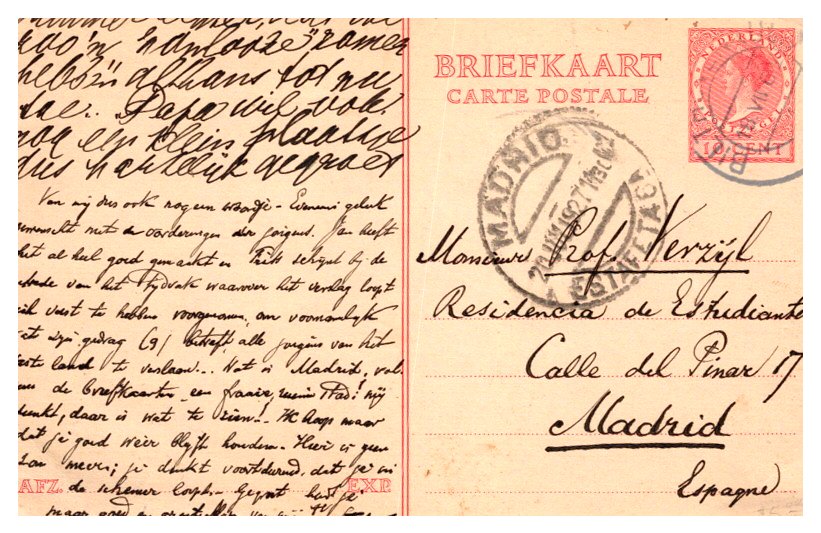 zoo'n "hanlooze" zomer
hebb'n althans tot nu
toe.. Papa wil ook
nog een klein plaatsje
dus hartelijk gegroet
Van mij dus ook nog een woordje - Eveneens geluk
gewenscht met de vorderingen der jongens. Jan heeft
het al heel goed gemaakt en Frits schijnt bij de
van het tijdvak waarover het verslag loopt
vast te hebben voorgenomen, om voornamelijk
zijn gedrag (9) betreft alle jongens van het
land te verslaan... Wat is Madrid, vol
de briefkaarten een fraaie, ruime stad! mij
denkt, daar is wat te zien! Ik hoop maar
dat je goed weer blijft houden. Hier is geen
zon meer; je denkt voortdurend, dat je in
de schemer loopt. Gegroet
maar goed en
AFZ. EXP.
BRIEFKAART
CARTE POSTALE
NEDERLAND
10 CENT
MADRID
ESTAFETA
Monsieur Prof. Verzijl
Residencia de Estudiante
Calle del Pinar 17
Madrid
Espagne